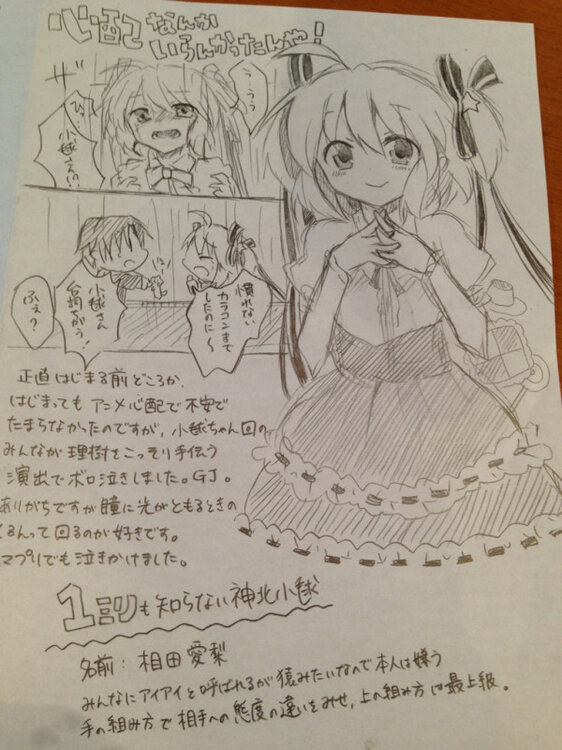 心配て なんか
いらんかったんや！
ザ
うぅ…うぅ
ひっ…小毬さん…
慣れない
カラコンまで
したのに〜
小毬さん
台詞ちがう！
ふぇ？
正直はじまる前どころか、
はじまってもアニメ心配で不安で
たまらなかったのですが、小毬ちゃん回の
みんなが理樹をこっそり手伝う
演出でボロ泣きしました。GJ。
ありがちですが瞳に光がともるときの
くるんって回るのが好きです。
マプリでも泣きかけました。
1ミリも知らない神北小毬
名前：相田愛梨
みんなにアイアイと呼ばれるが猿みたいなので本人は嫌う
手の組み方で相手への態度の違いをみせ、上の組み方は最上級。